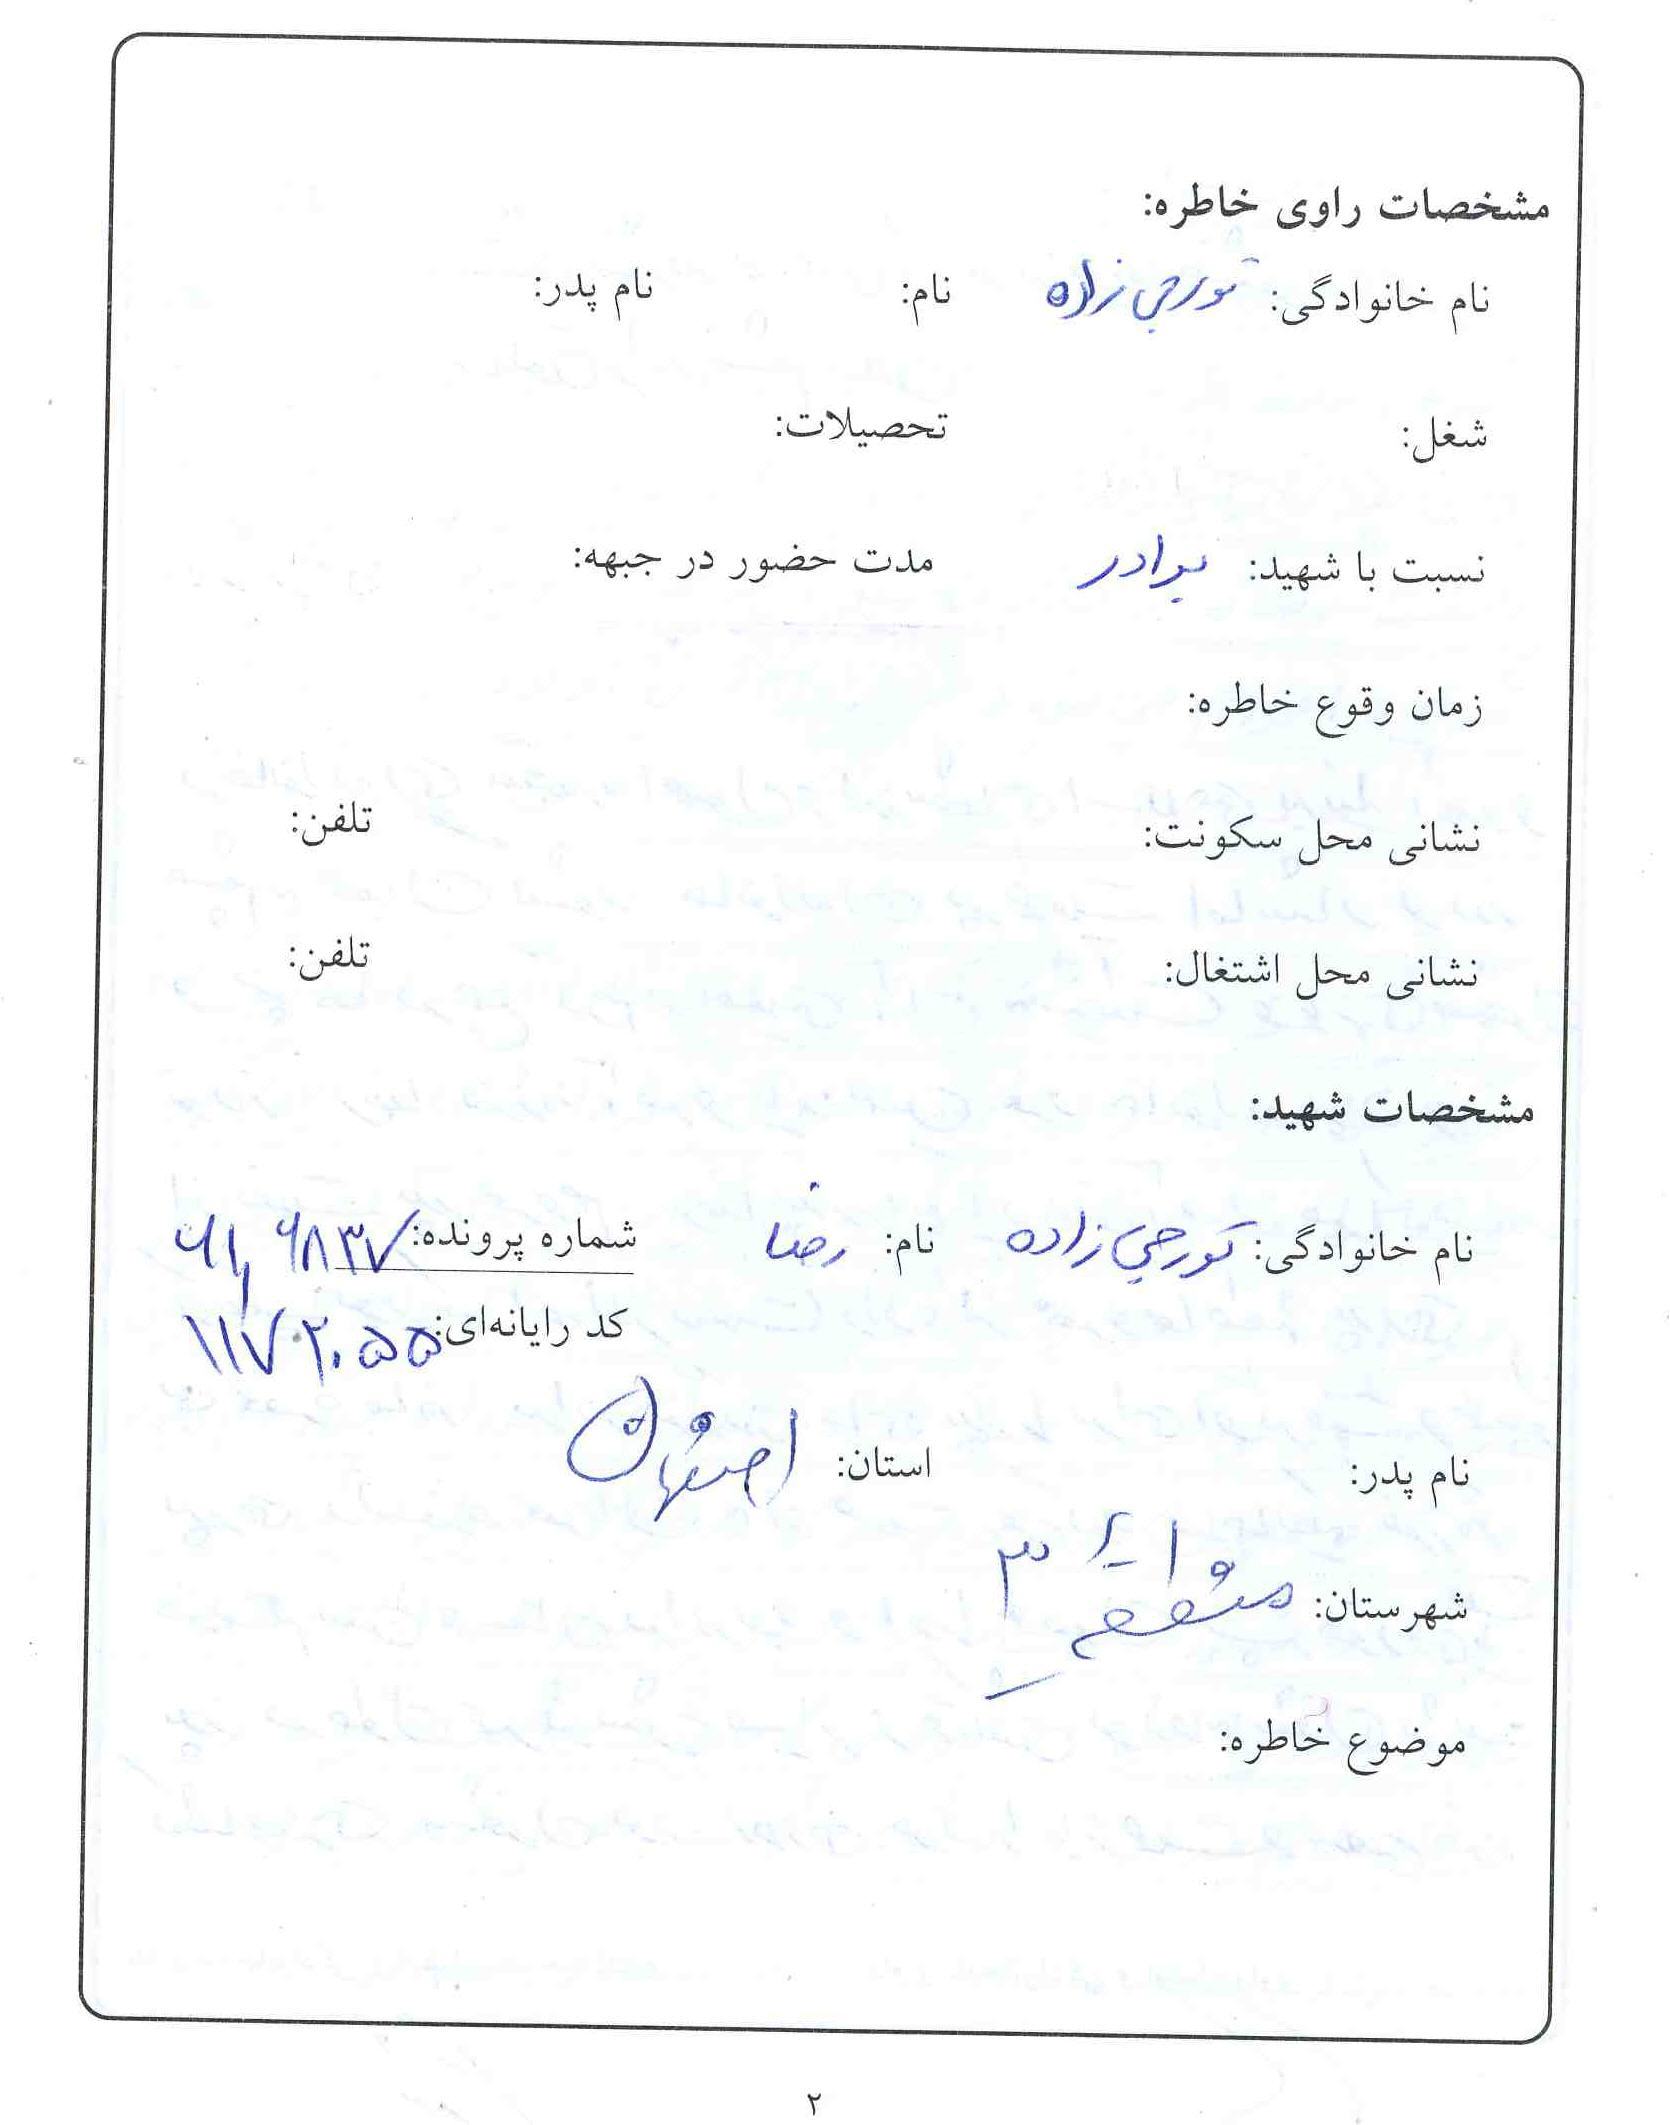 مشخصات راوی خاطره:
نام خانوادگی: تورجی زاده نام: نام پدر:
شغل: تحصیلات:
نسبت با شهید: برادر مدت حضور در جبهه:
زمان وقوع خاطره:
نشانی محل سکونت: تلفن:
نشانی محل اشتغال: تلفن:
مشخصات شهید:
نام خانوادگی: تورجی زاده نام: رضا شماره پرونده: ۶۱,۶۸۳۷
کد رایانه‌ای: ۱۱۷۲۰۵۵
نام پدر: استان: اصفهان
شهرستان: منطقه ۳
موضوع خاطره:
۲